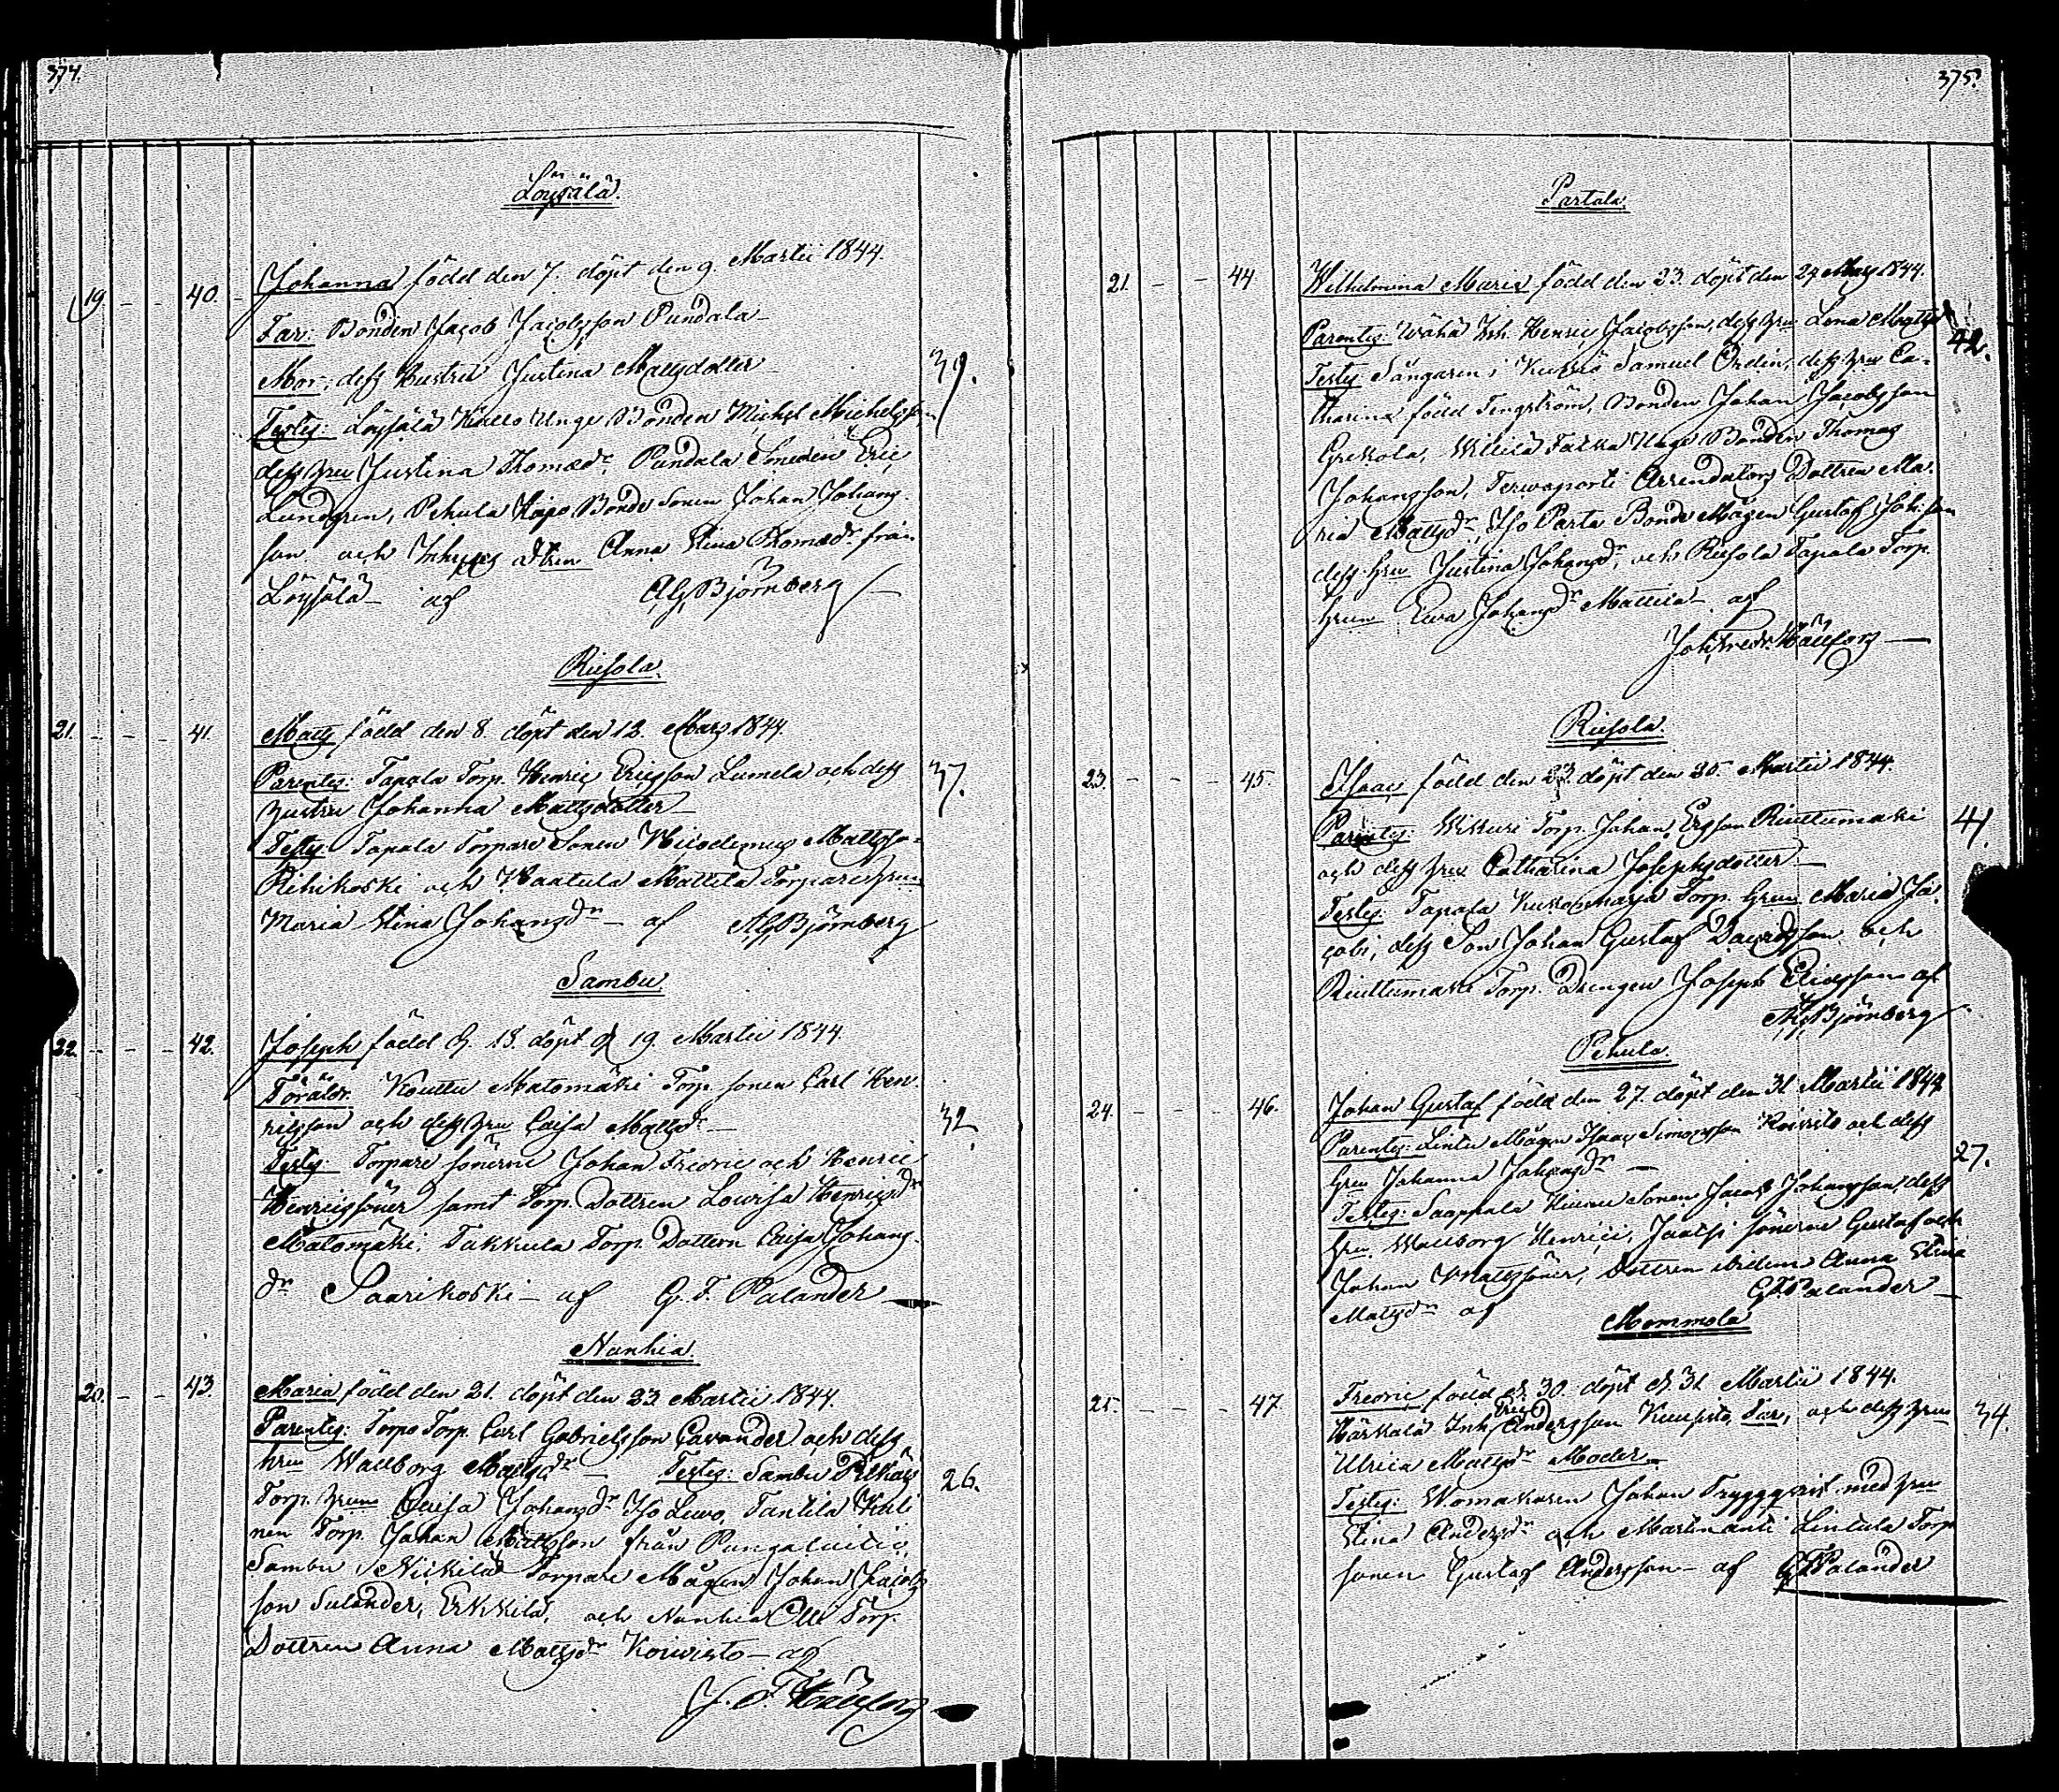 374.
Löysälä.
19 - - 40. Johanna född den 7. döpt den 9. Martii 1844.
Far: Bonden Jacob Jacobsson Pundala
Mor: dess Hustru Justina Mattsdotter 39.
Testes: Löysälä Unge Bonden Michel Michelsson
dess hru Justina Thomædr, Pundala Smeden Eric
Lundgren, Pehula Bonde Sonen Johan Johans
son och Inhyses dtren Anna Stina Thomædr från
Löysälä af A.G. Björnberg
Riesola.
21. - - - 41. Matts född den 8. döpt den 12. Mars 1844.
Parentes: Tapola Torp. Henric Ericsson Lumela och dess 37.
hustru Johanna Mattsdotter
Testes: Tapala Torpare Sonen Nicodemus Mattsson
Rihikoski och Mattila Torpares hrun
Maria Stina Johansdr af A.G. Björnberg
Sambu
22. - - - 42. Joseph född d. 18. döpt d 19. Martii 1844.
Föräldr. Kouttu Matomäki Torp. sonen Carl Hen
ricsson och dess hru Caisa Mattsdr 32.
Testes: Torpare sönerne Johan Fredric och Henric
Henricssöner samt Torp. Dottren Lowisa Henricsdr
Matomäki, Takkula Torp. Dottren Caisa Johans
dr Saarikoski af G. F. Palander
Nanhia.
20. - - 43. Maria född den 21. döpt den 23. Martii 1844.
Parentes: Torpo Torp. Carl Gabrielsson Cavander och dess
hru Wallborg Mattsdr Testes: Sambu 26.
Torp. hrun Caisa Johansdr Iso Lewo, Tantila
Torp. Johan Mattsson från
Sambu Nickilä Torpare Mågen Johan Jacobs
son Sulander, Erkkilä, och Nanhia Olli Torp.
Dottren Anna Mattsdr Koiwisto af
J. F. Hällfors
375.
Partala.
21. - - 44 Wilhelmina Maria född den 23. döpt den 24 Mars 1844.
Parentes: Wähä Inh. Henric Jacobsson, dess hru Lena Mattsdr 42.
Testes: Sångaren i Samuel Ordin, dess hru Ca-
tharina född Tengström, Bonden Johan Jacobsson
Grekola, Unge Bonden Thomas
Johansson, Terwaporti Arrendators Dottren Ma-
ria Mattsdr, Iso Parta Bonde Mågen Gustaf Joh:son
dess hru Justina Johansdr, och Riesola Tapala Torp.
hrun Ewa Johansdr Mattila af
Joh. Fredr. Hällfors
Riesola.
23. - - - 45. Isaac född den 23. döpt den 25. Martii 1844.
Parentes: Torp. Johan Ersson Riuttumaki 41.
och dess hru Catharina Josephsdotter
Testes: Tapala Torp. hrun Maria Ja
cobi, dess Son Johan Gustaf Davidsson och
Riuttumaki Torp. Drengen Joseph Ericsson af
A.G. Björnberg
Pehula.
24. - - - 46. Johan Gustaf född den 27. döpt den 31. Martii 1844
Parentes: Lintu Mågen Isaac Simonsson Koivisto och dess 27.
hru Johanna Johansdr
Testes: Saappala Sonen Jacob Johansson, dess
hru Wallborg Henrici, sönerne Gustaf och
Johan Mattssöner, Dottren ibidem Anna Stina
Mattsdr af G.F. Palander
Mommola
25. - - - 47 Fredric född d. 30. döpt d. 31 Martii 1844.
Härkälä Inh. Andersson, Far, och dess hru 34.
Ulrica Mattsdr Moder
Testes: Womakaren Johan Tryggqvist med hru
Stina Andersdr och Martinanti Lintula Torp
sonen Gustaf Andersson af G.F. Palander